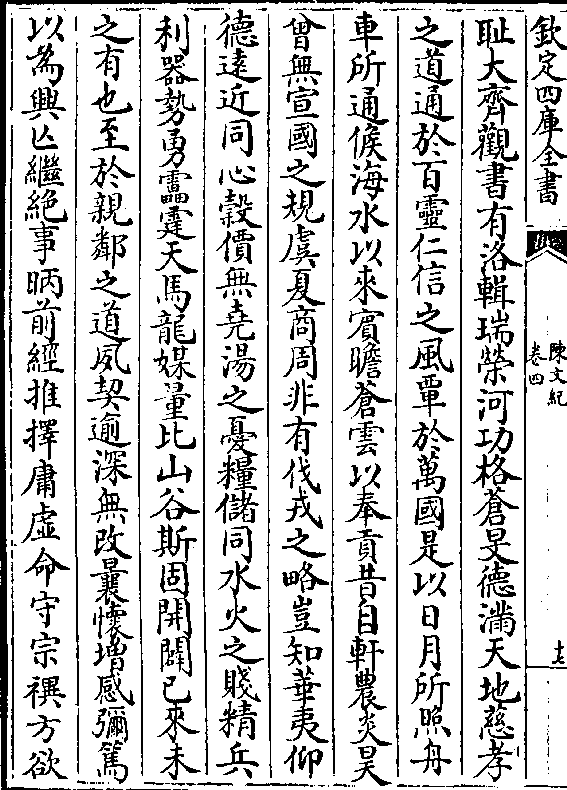 欽定四庫全書
陳文紀
卷四
十七
耻大齊觀書有洛輯瑞榮河功格蒼旻德滿天地慈孝
之道通於百靈仁信之風覃於萬國是以日月所照舟
車所通候海水以來賓瞻蒼雲以奉貢昔自軒農炎昊
曾無宣國之規虞夏商周非有伐戎之略豈知華夷仰
德遠近同心穀價無堯湯之憂糧儲同水火之賤精兵
利器勢勇靁霆天馬龍媒量比山谷斯固開闢已來未
之有也至於親鄰之道夙契逾深無改曩懷増感彌篤
以爲興亾繼絶事昞前經推擇庸虚命守宗禩方欲